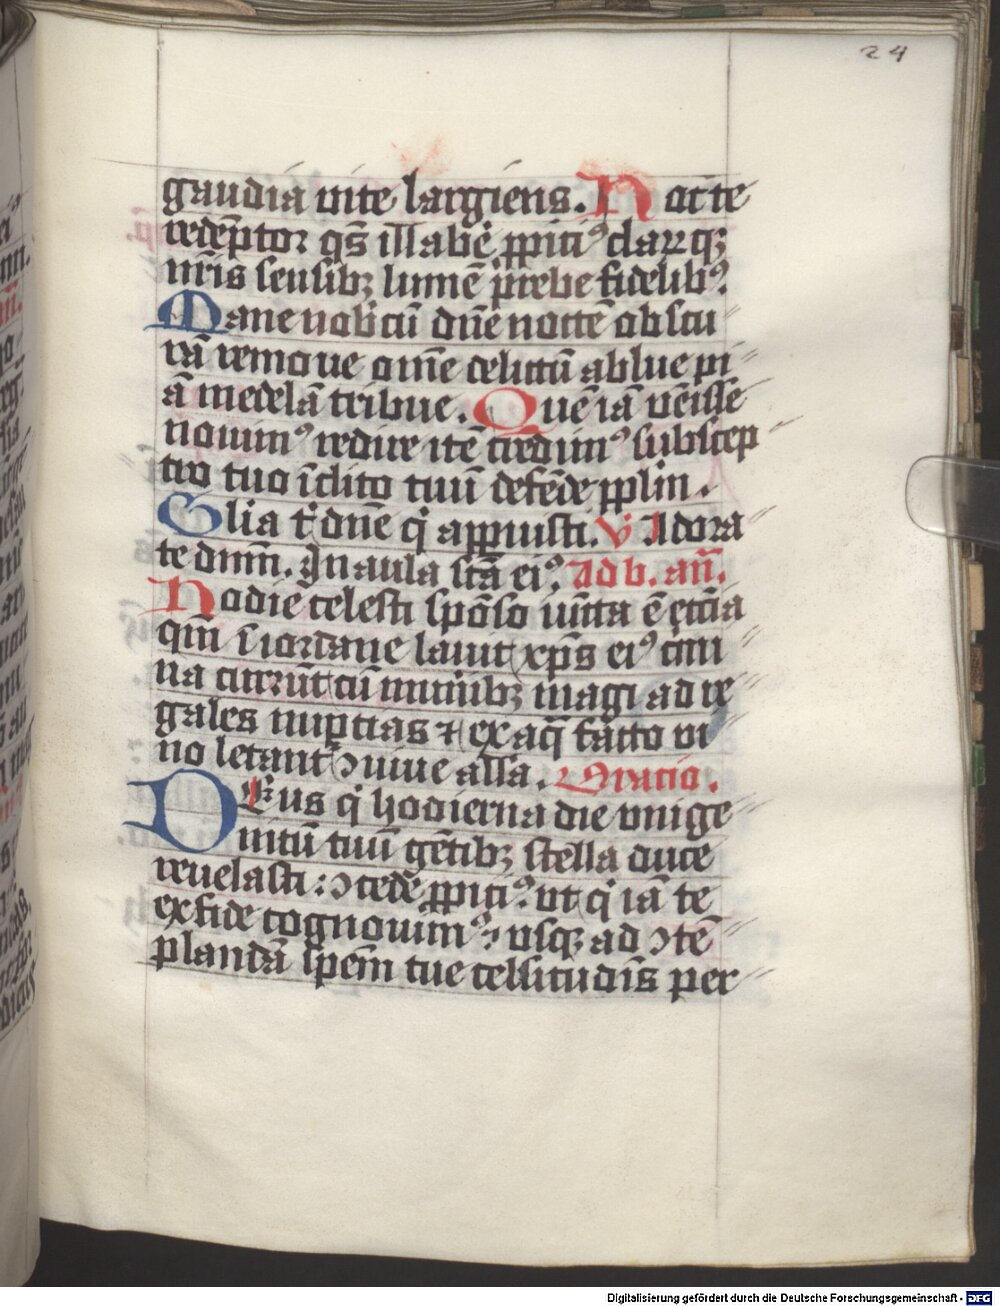 24
gaudia uite largiens. Nocte
redēptor q̄s illabe ꝓpiciꝰ clarꝫ qꝫ
nr̄is sensibꝫ lumē p̄rebe fidelibꝰ
Mane nobcū dn̄e noctē obscu
rā remoue om̄e delictū ablue pi
ā medelā tribue. Quē iā uenisse
nouimꝰ redire itē credimꝰ subscep
tro tuo īclito tuū defēde ꝓplm.
Glia t̄ dn̄e q̇ appuisti. V̇ Adora
te dnm̄. In aula sc̄a eiꝰ. Ad b. an̄.
Hodie celesti spōso iūcta ē ecc̄ia
qm̄ ī iordane lauit xp̄s eiꝰ cimi
na currūt cū munībꝫ magi ad re
gales nupcias ⁊ ex aq̄ facto vi
no letant ɔuiue all̄a. Oracio.
Deus q̇ hodierna die vnige
nitū tuū gētibꝫ stella duce
reuelasti: ɔcede ꝓpiciꝰ. ut q̇ iā te
ex fide cognouimꝰ: vsqꝫ ad ɔtē
plandā spem̄ tue celsitudīs per
Digitalisierung gefördert durch die Deutsche Forschungsgemeinschaft - DFG